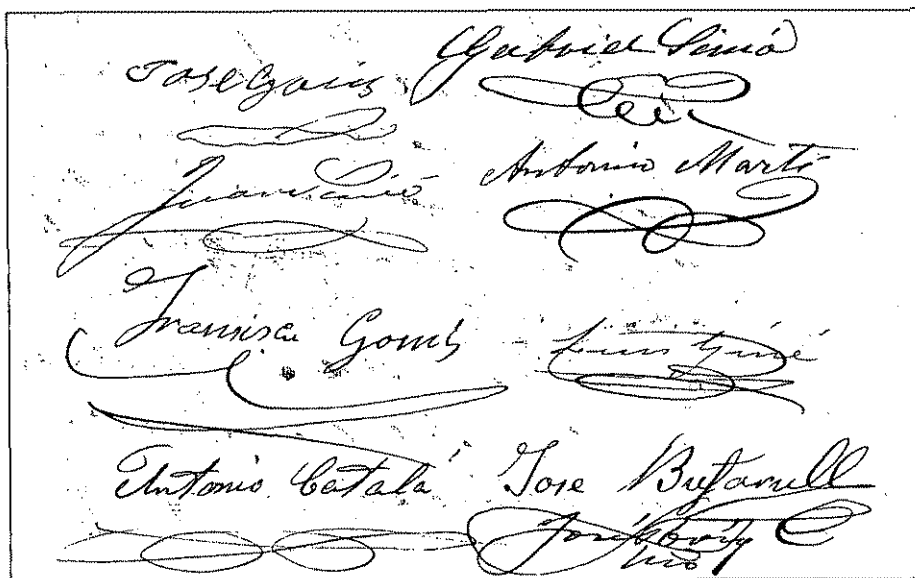 Jose
Gabriel Simó
Juan Simó
Antonio Martí
Francisco Gomis
Luis Giné
Antonio Catalá
Jose Bufarull
José